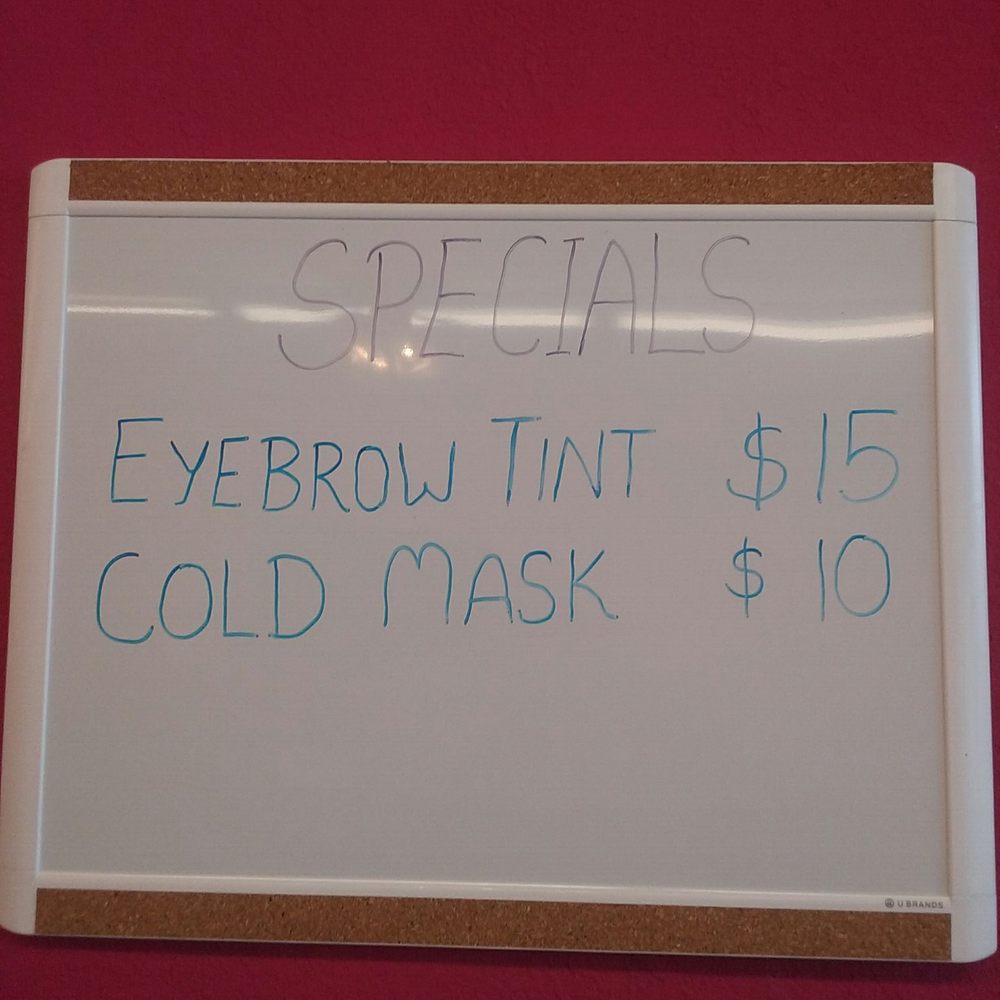 SPECIALS
EYEBROW TINT $15
COLD MASK $10
U BRANDS